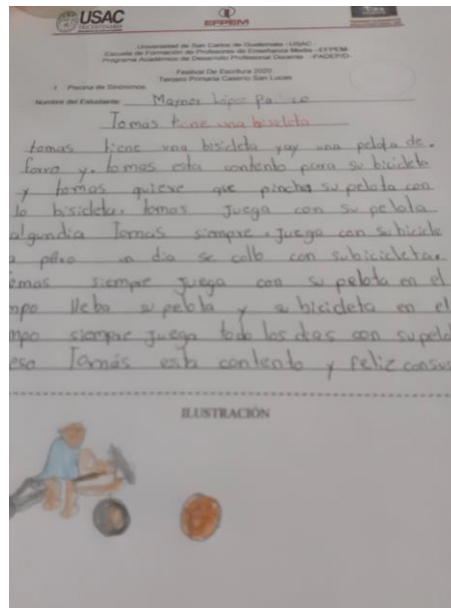 USAC
TRICENTENARIA
EFPEM
Universidad de San Carlos de Guatemala - USAC -
Escuela de Formación de Profesores de Enseñanza Media - EFPEM-
Programa Académico de Desarrollo Profesional Docente -PADEP/D-
Festival De Escritura 2020
Tercero Primaria Caserío San Lucas
Piscina de Sinónimos.
Nombre del Estudiante: Maynor López
Tomas tiene una bisicleta
tomas tiene una bisicleta yay una pelota de.
forro y. tomas esta contento para su bicicleta
y tomas quiere que pincha su pelota con
la bisicleta. tomas Juega con su pelota
algundia Tomas siempre. Juega con su bicicle
a pero un dia se callo con subicicleta.
omas siempre Juega con su pelota en el
mpo lleba su pelota y su bicicleta en el
mpo siempre Juega todo los dias con supelo
eso Tomás esta contento y feliz consus
ILUSTRACIÓN